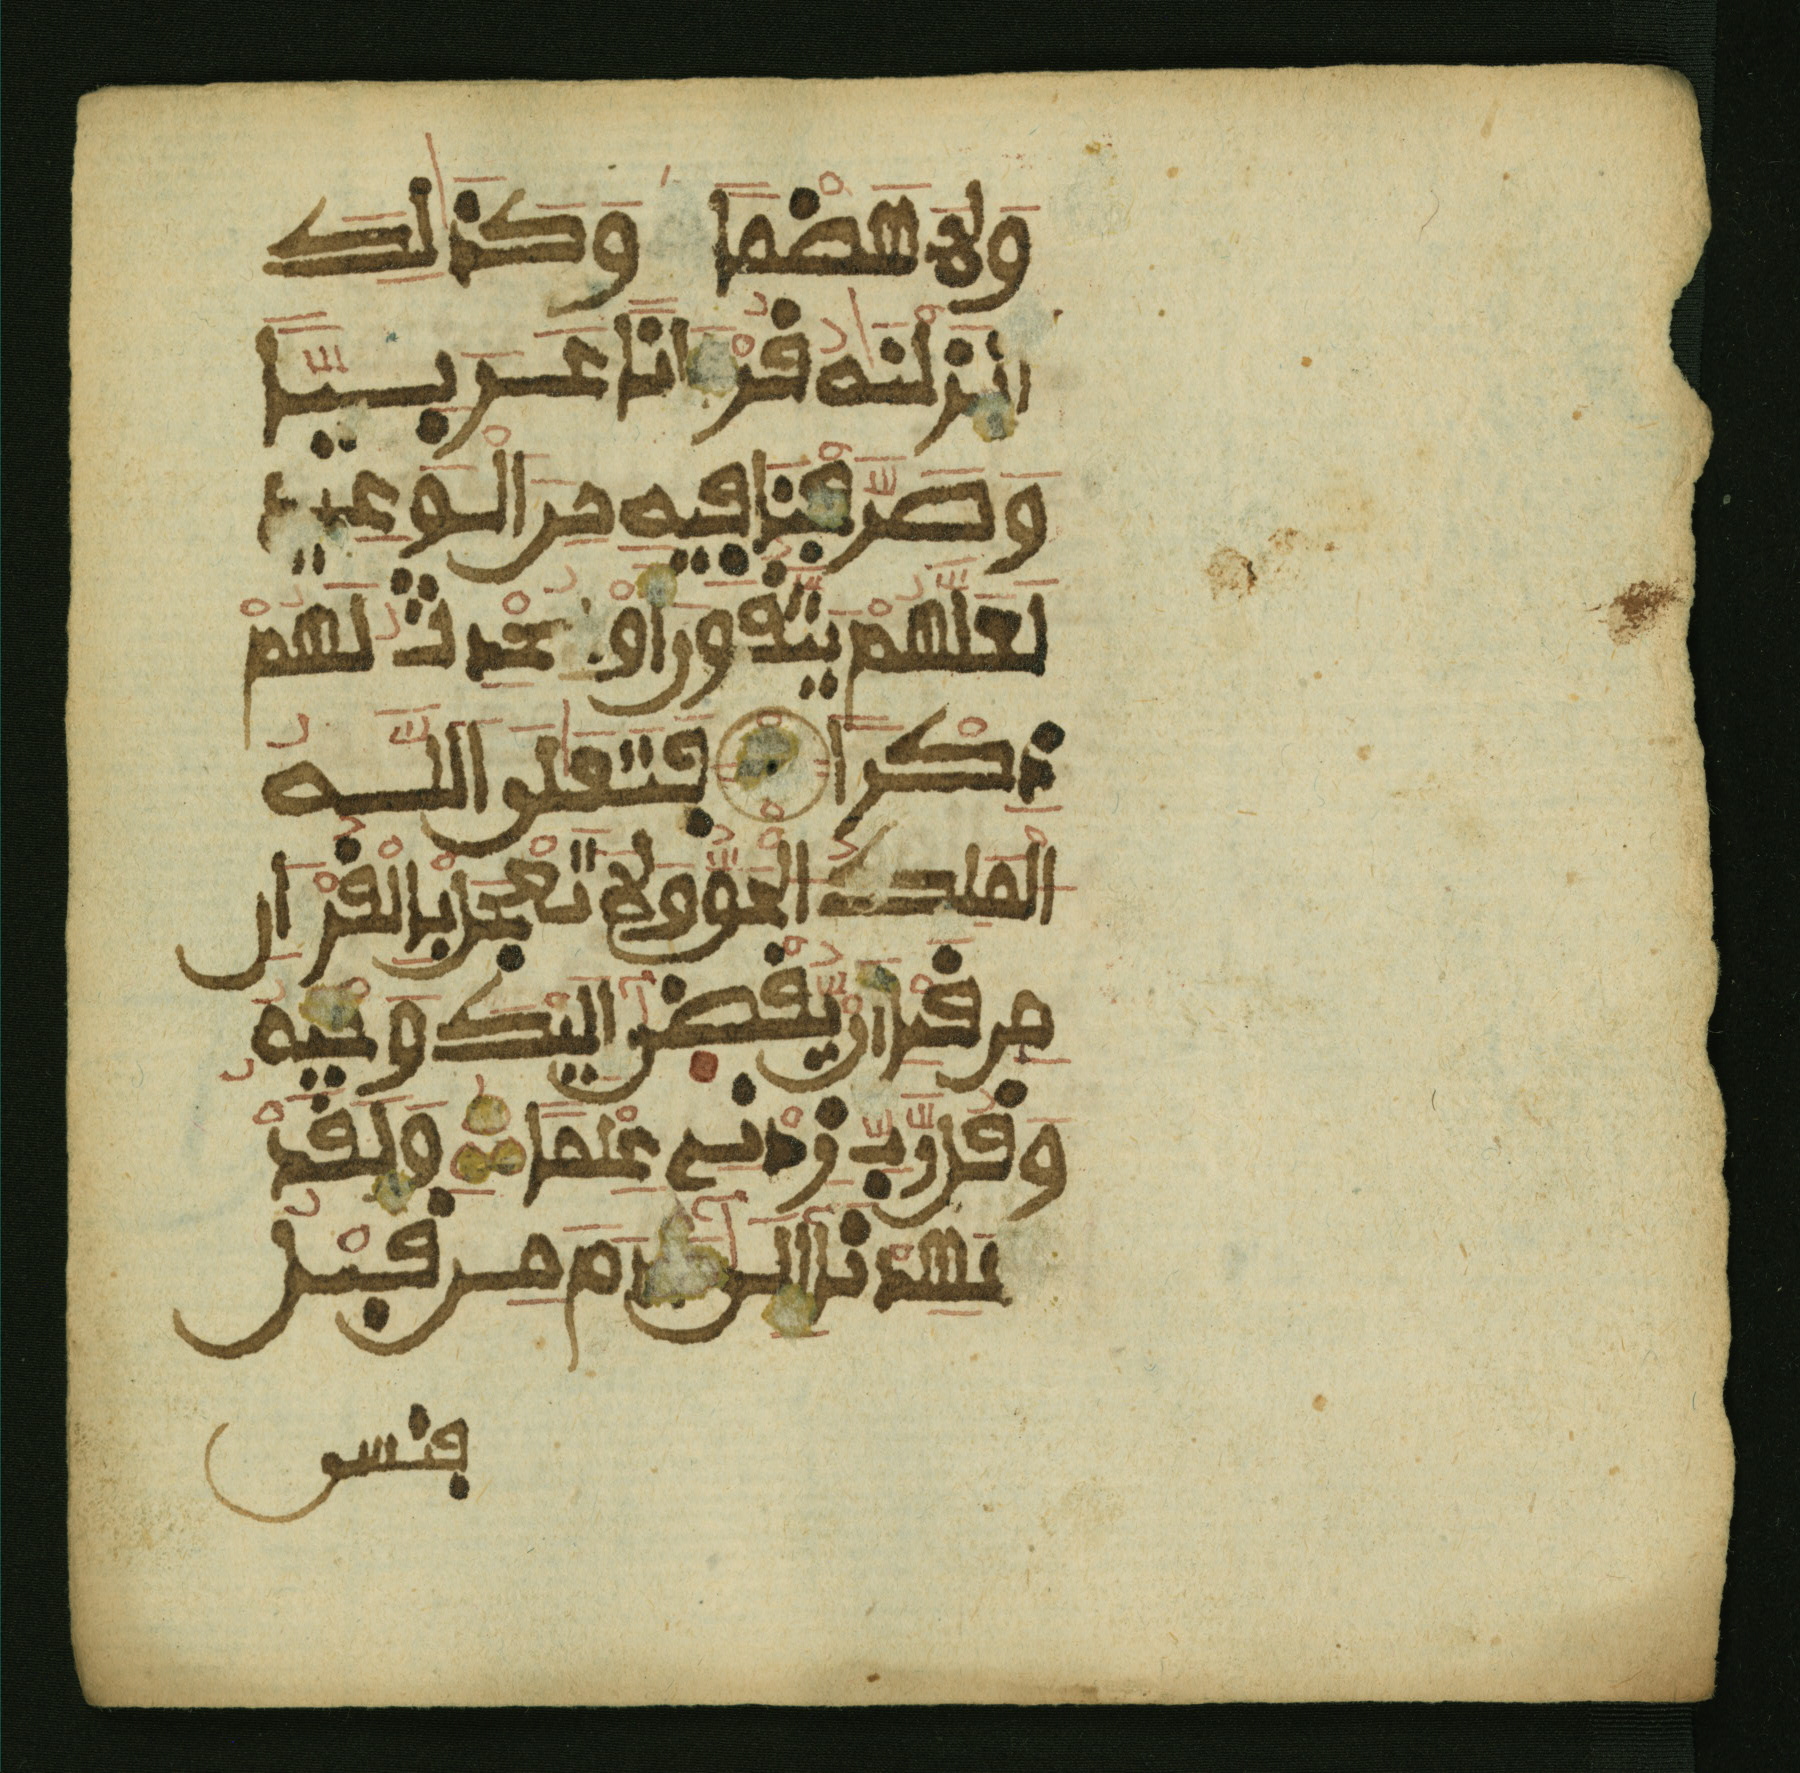 وَلَا هَضْمًا وَكَذَٰلِكَ
أَنزَلْنَٰهُ قُرْءَانًا عَرَبِيًّا
وَصَرَّفْنَا فِيهِ مِنَ الْوَعِيدِ
لَعَلَّهُمْ يَتَّقُونَ أَوْ يُحْدِثُ لَهُمْ
ذِكْرًا فَتَعَٰلَى اللَّهُ
الْمَلِكُ الْحَقُّ وَلَا تَعْجَلْ بِالْقُرْءَانِ
مِن قَبْلِ أَنْ يُّقْضَىٰ إِلَيْكَ وَحْيُهُ
وَقُل رَّبِّ زِدْنِي عِلْمًا وَلَقَدْ
عَهِدْنَا إِلَىٰ ءَادَمَ مِن قَبْلُ
فنسى